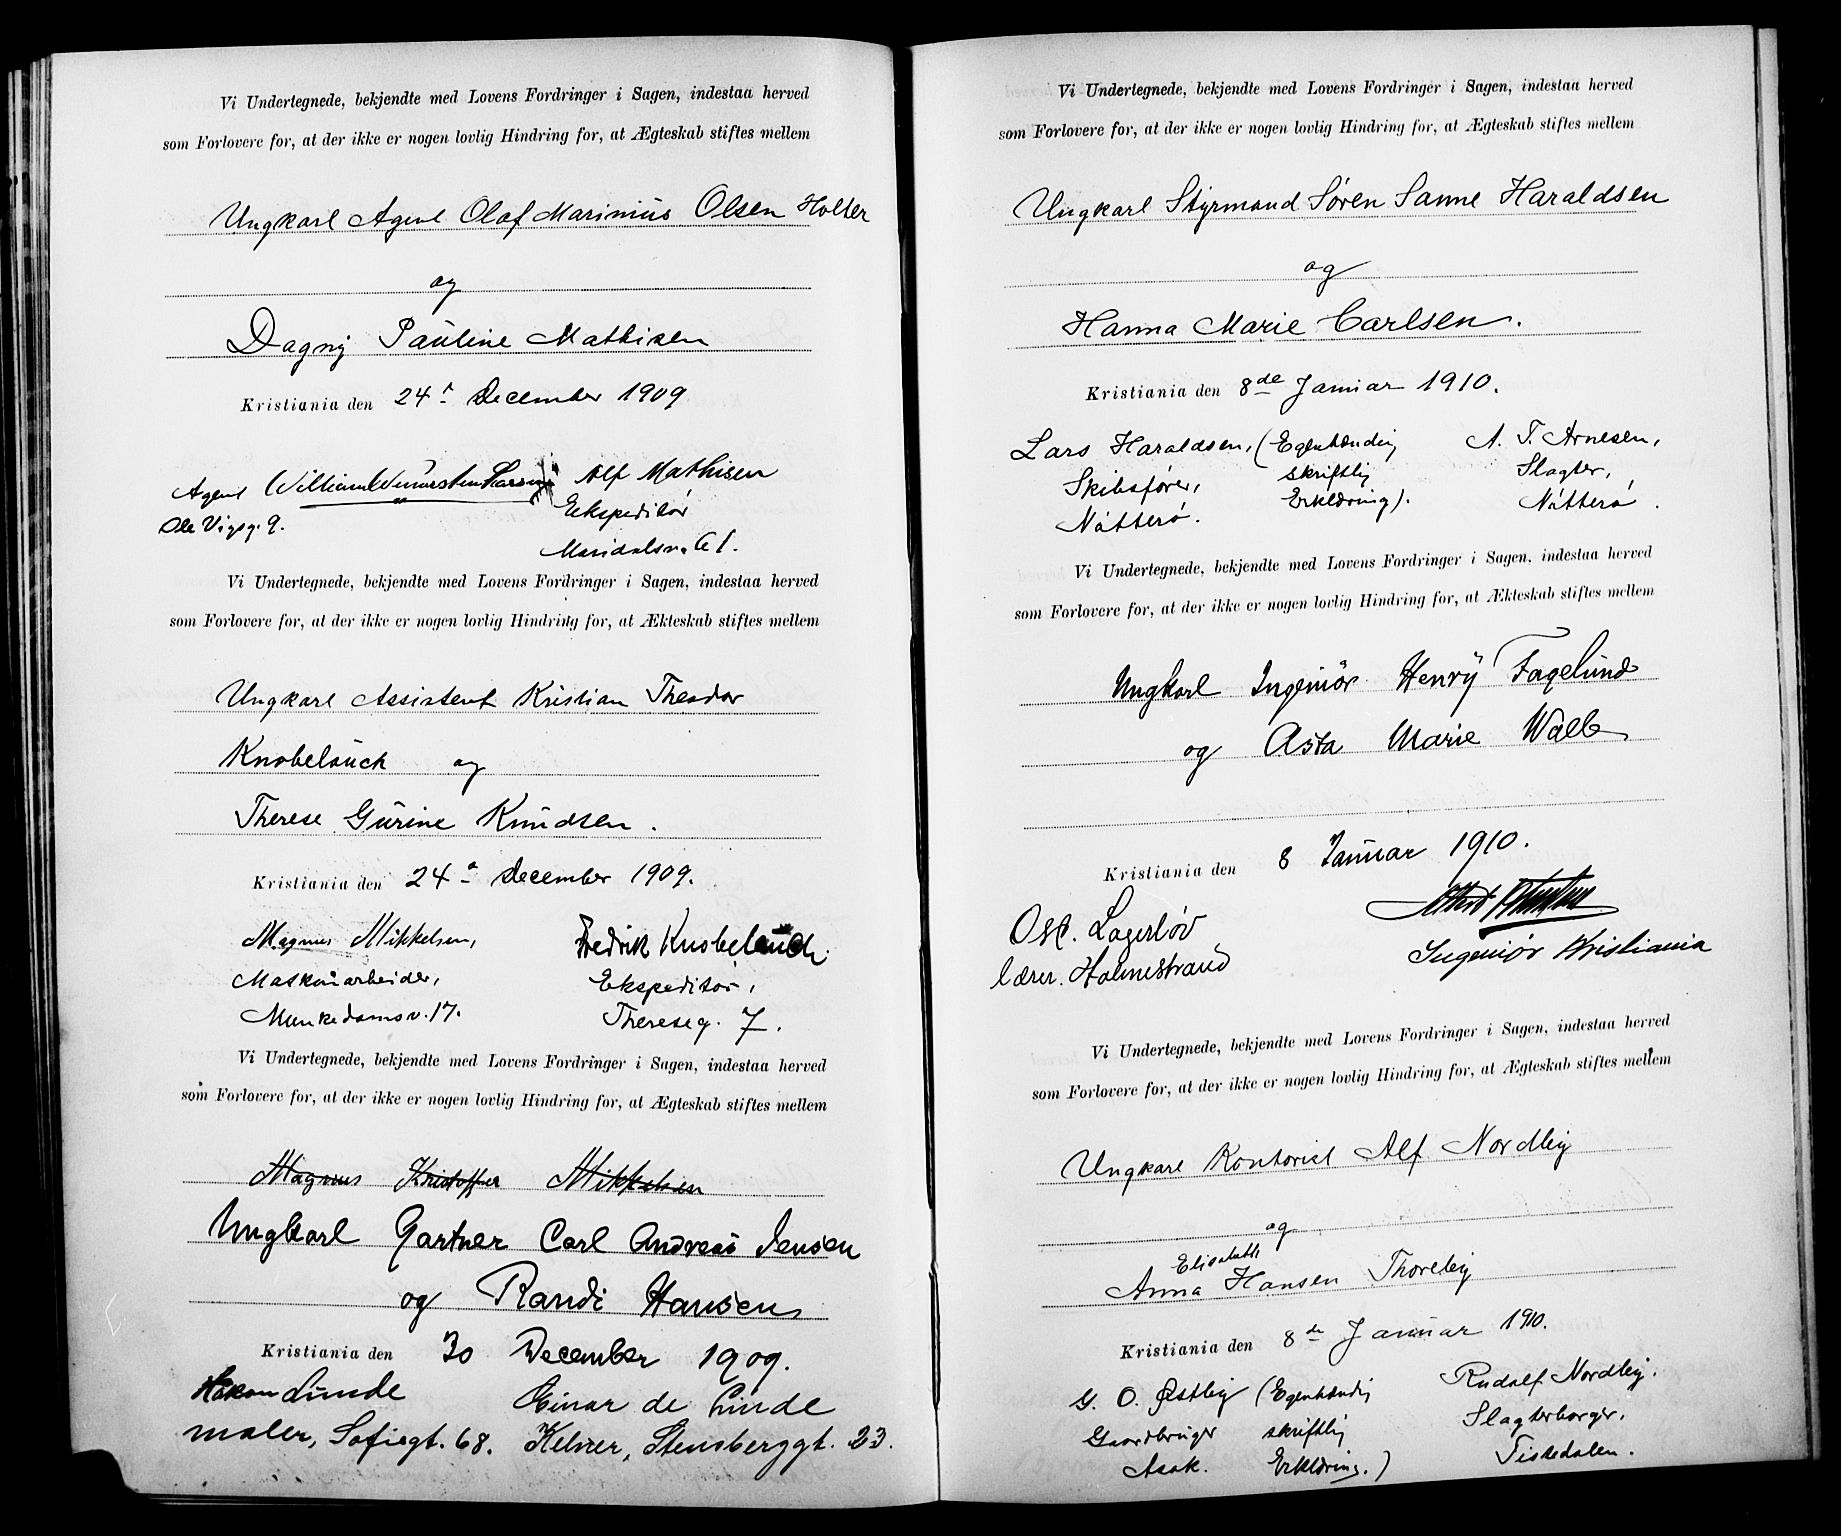 Vi Undertegnede, bekjendte med Lovens Fordringer i Sagen, indestaa herved
som Forlovere for, at der ikke er nogen lovlig Hindring for, at Ægteskab stiftes mellem
Ungkarl Agent Olaf Marinius Olsen Holter
og
Dagny Pauline Mathisen
Kristiania den 24. December 1909
Agent William Alf Mathisen
Ole Vigsg. 9. Ekspeditör
Maridalsv. 61.
Vi Undertegnede, bekjendte med Lovens Fordringer i Sagen, indestaa herved
som Forlovere for, at der ikke er nogen lovlig Hindring for, at Ækteskab stiftes mellem
Ungkarl Assistent Kristian Theodor
Knobelauch og
Therese Gurine Knudsen.
Kristiania den 24. December 1909.
Magnus Mikkelsen, Fredrik Knobelauch.
Maskinarbeider, Ekspeditör,
Munkedamsv. 17. Thereseg. 7.
Vi Undertegnede, bekjendte med Lovens Fordringer i Sagen, indestaa herved
som Forlovere for, at der ikke er nogen lovlig Hindring for, at Ægteskab stiftes mellem
Magnus Kristoffer Mikkelsen
Ungkarl Gartner Carl Andreas Jensen
og Randi Hansen
Kristiania den 30 December 1909.
Håkon Linde Einar de Linde
maler, Sofiegt. 68. Kelner, Stensberggt. 23.
Vi Undertegnede, bekjendte med Lovens Fordringer i Sagen, indestaa herved
som Forlovere for, at der ikke er nogen lovlig Hindring for, at Ægteskab stiftes mellem
Ungkarl Styrmand Søren Sanne Haraldsen
og
Hanna Marie Carlsen.
Kristiania den 8de Januar 1910.
Lars Haraldsen, (Egenhændig A. T. Arnesen,
Skibsfører, skriftlig Slagter,
Nötterö. Erklæring). Nötterö.
Vi Undertegnede, bekjendte med Lovens Fordringer i Sagen, indestaa herved
som Forlovere for, at der ikke er nogen lovlig Hindring for, at Ækteskab stiftes mellem
Ungkarl Ingeniör Henry Fagelund
og Asta Marie Walle
Kristiania den 8 Januar 1910.
Osc. Lagerløv
lærer. Holmestrand Ingeniör Kristiania
Vi Undertegnede, bekjendte med Lovens Fordringer i Sagen, indestaa herved
som Forlovere for, at der ikke er nogen lovlig Hindring for, at Ægteskab stiftes mellem
Ungkarl Kontorist Alf Nordby
og
Elisabeth
Anna Hansen Thoreby
Kristiania den 8de Januar 1910.
G. O. Østby (Egenhændig Rudolf Nordby.
Gaardbruger skriftlig Slagterborger,
Asak. Erklæring.) Tistedalen.